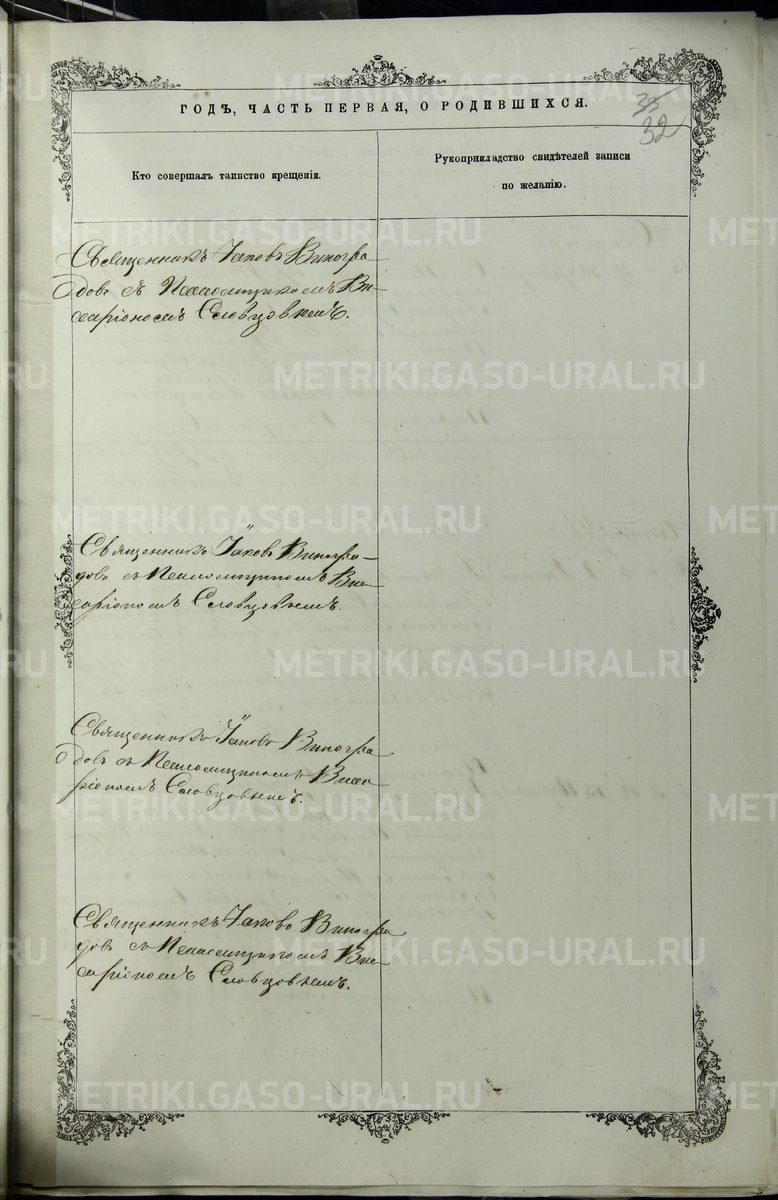 ГОДЪ, ЧАСТЬ ПЕРВАЯ, О РОДИВШИХСЯ.
35
32
Кто совершалъ таинство крещенія.
Рукоприкладство свидѣтелей записи
по желанію.
Священникъ Іаковъ Виногра
довъ съ Псаломщикомъ Ви-
саріономъ Словцовымъ.
Священникъ Іаковъ Виногра-
довъ съ Псаломщикомъ Вис
саріономъ Словцовымъ.
Священникъ Іаковъ Виногра
довъ съ Псаломщикомъ Висса
ріономъ Словцовымъ.
Священникъ Іаковъ Виногра
довъ съ Псаломщикомъ Вис
саріономъ Словцовымъ.
METRIKI.GASO-URAL.RU